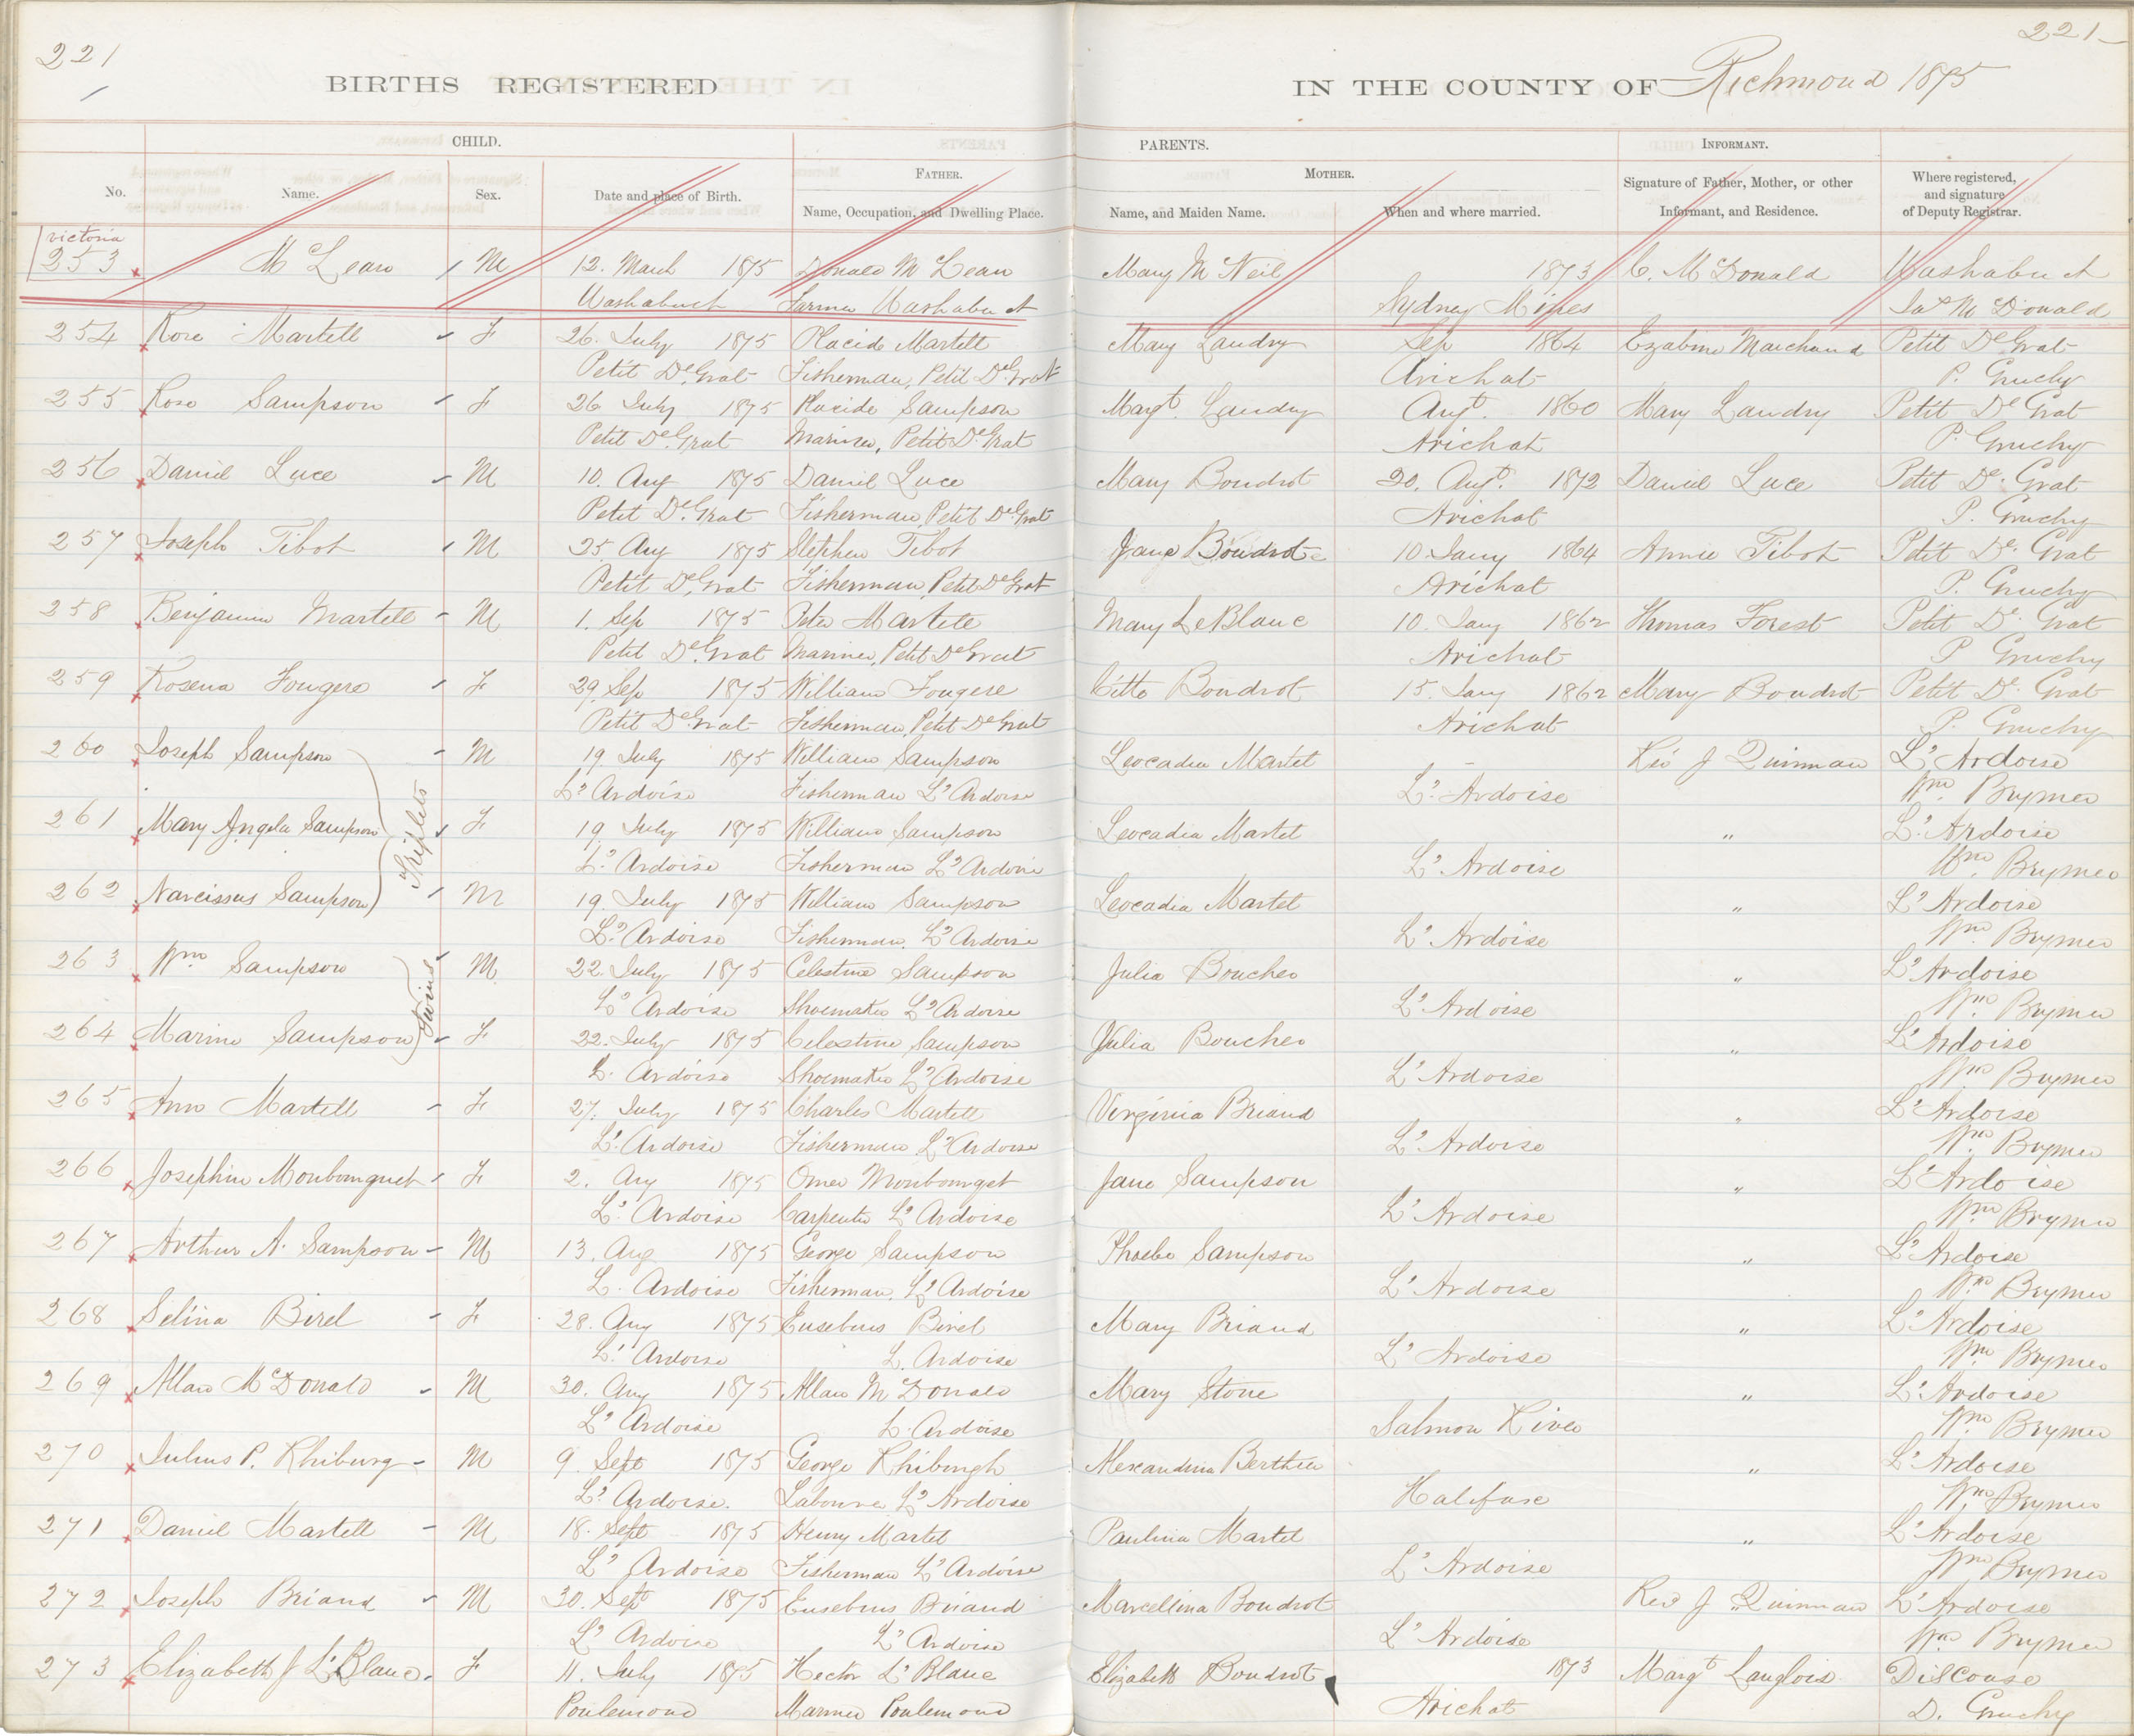 221 221
BIRTHS REGISTERED IN THE COUNTY OF Richmond 1875
CHILD. PARENTS. INFORMANT.
No. Name. Sex. Date and place of Birth. FATHER. MOTHER. Signature of Father, Mother, or other Where registered,
Name, Occupation, and Dwelling Place. Name, and Maiden Name. When and where married. Informant, and Residence. and signature
of Deputy Registrar.
victoria
253 McLean M 12. March 1875 Donald McLean Mary McNeil 1873 C. McDonald Washabuct
Washabuct Farmer Washabuct Sydney Mines Jas McDonald
254 Rose Martell F 26. July 1875 Placide Martell Mary Landry Sep 1864 Marchand Petit De Grat
Petit De Grat Fisherman, Petit De Grat Arichat P. Gruchy
255 Rose Sampson F 26 July 1875 Placide Sampson Margt. Landry Augt. 1860 Mary Landry Petit De Grat
Petit De Grat Mariner, Petit De Grat Arichat P. Gruchy
256 Daniel Luce M 10. Aug 1875 Daniel Luce Mary Boudrot 20. Augt. 1872 Daniel Luce Petit De Grat
Petit De Grat Fisherman, Petit De Grat Arichat P. Gruchy
257 Joseph Tibot M 25. Aug 1875 Stephen Tibot Jane Boudrot 10. Jany 1864 Annie Tibot Petit De Grat
Petit De Grat Fisherman, Petit De Grat Arichat P. Gruchy
258 Benjamin Martell M 1. Sep 1875 Peter Martell Mary LeBlanc 10. Jany 1862 Thomas Forest Petit De Grat
Petit De Grat Mariner, Petit De Grat Arichat P Gruchy
259 Rosena Fougere F 29. Sep 1875 William Fougere Boudrot 15. Jany 1862 Mary Boudrot Petit De Grat
Petit De Grat Fisherman, Petit De Grat Arichat P. Gruchy
260 Joseph Sampson M 19 July 1875 William Sampson Leocadia Martet Rev J Quinnan L'Ardoise
L'Ardoise Fisherman L'Ardoise L'Ardoise Wm. Brymer
261 Mary Angela Sampson Triplets F 19 July 1875 William Sampson Leocadia Martet " L'Ardoise
L'Ardoise Fisherman L'Ardoise L'Ardoise Wm. Brymer
262 Narcissus Sampson M 19. July 1875 William Sampson Leocadia Martet " L'Ardoise
L'Ardoise Fisherman. L'Ardoise L'Ardoise Wm Brymer
263 Wm Sampson Twins M. 22. July 1875 Celestine Sampson Julia Boucher " L'Ardoise
L'Ardoise Shoemaker L'Ardoise L'Ardoise Wm. Brymer
264 Marine Sampson F 22. July 1875 Celestine Sampson Julia Boucher " L'Ardoise
L. Ardoise Shoemaker L'Ardoise L'Ardoise Wm Brymer
265 Ann Martell F 27. July 1875 Charles Martell Virginia Briand " L'Ardoise
L'Ardoise Fisherman L'Ardoise L'Ardoise Wm. Brymer
266 Josephine Monbourquet F 2. Aug 1875 Omer Monbourget Jane Sampson " L'Ardoise
L'Ardoise Carpenter L'Ardoise L'Ardoise Wm Brymer
267 Arthur A. Sampson M 13. Aug 1875 George Sampson Phoebe Sampson " L'Ardoise
L. Ardoise Fisherman, L'Ardoise L'Ardoise Wm Brymer
268 Selina Birel F 28. Aug 1875 Eusebius Birel Mary Briand " L'Ardoise
L'Ardoise L. Ardoise L'Ardoise Wm Brymer
269 Allan McDonald M 30. Aug 1875 Allan McDonald Mary Stone " L'Ardoise
L'Ardoise L. Ardoise Salmon River Wm Brymer
270 Julius P. Rhiburg M 9. Sept 1875 George Rhibingh Alexandrina Berthier " L'Ardoise
L'Ardoise. Labourer L'Ardoise Halifax Wm Brymer
271 Daniel Martell M 18. Sept 1875 Henry Martet Paulina Martet " L'Ardoise
L'Ardoise Fisherman L'Ardoise L'Ardoise Wm Brymer
272 Joseph Briand M 30. Sept 1875 Eusebius Briand Marcellina Boudrot Rev J Quinnan L'Ardoise
L'Ardoise L'Ardoise L'Ardoise Wm Brymer
273 Elizabeth J LeBlanc. F 11. July 1875 Hector LeBlanc Elizabeth Boudrot 1873 Margt Langlois D'Escouse
Poulemond Mariner Poulemond Arichat D. Gruchy